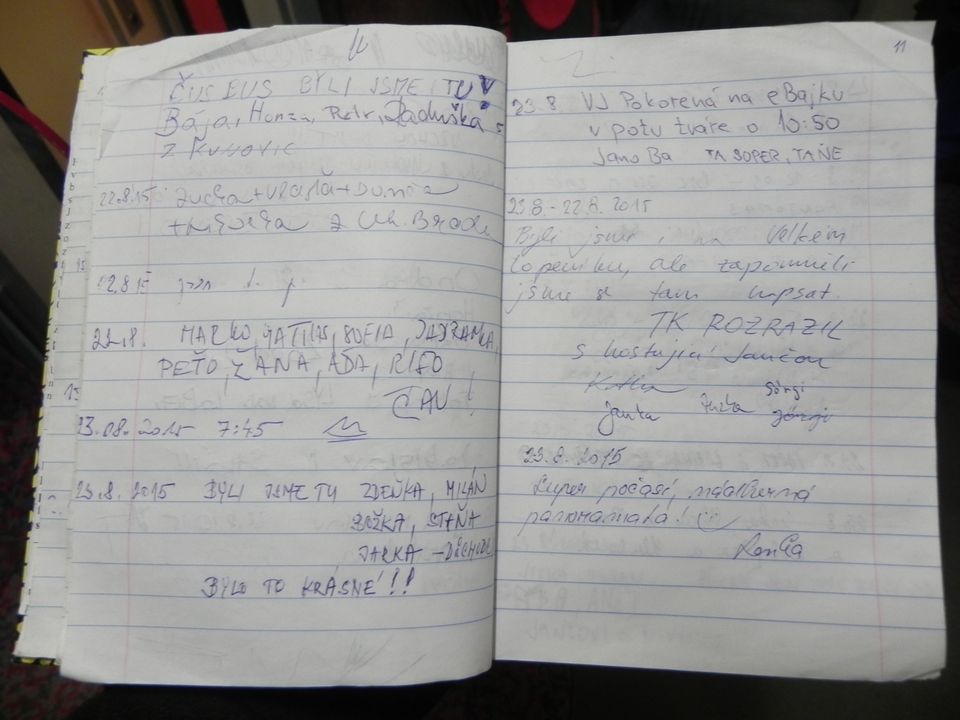 ČUS BUS BYLI JSME TU
Bája, Honza, Petr, Raduška
z
22.8.15 Zucha + +
+ z Uh. Brodu
22.8.15
22.8. MARKO, MATIAS, SOFIA,
PEŤO, ŽAŇA, AĎA, RIŠO
ČAU!
23.08.2015 7:45
23.8.2015 BYLI JSME TU ZDEŇKA, MILAN
BOŽKA, STAŇA
JARKA – DŮCHODC
BYLO TO KRÁSNÉ!!
11
23.8. VJ Pokorená na eBajku
v potu tváře o 10:50
Jano Ba TA SOPER, TAŇE
23.8. - 22.8. 2015
Byli jsme i na Velkém
Lopeníku, ale zapomněli
jsme se tam napsat.
TK ROZRAZIL
s hostující
Katka
Janka Zuzka Görgi
23.8.2015
Super počasí, nádherná
panoramata!